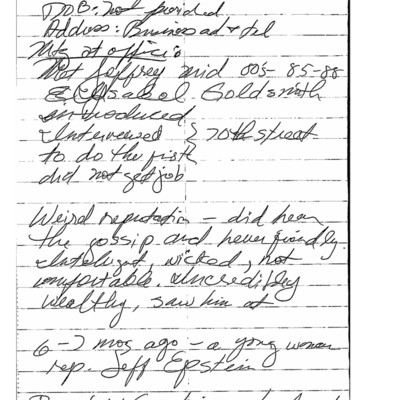 DOB: not provided
Address: Business ad + tel
Mtg at office
Met Jeffrey mid 00s - 85-88
Isabel Goldsmith
introduced
interviewed } 70th street
to do the
did not get job
Weird reputation — did hear
the gossip and never friendly.
Intelligent, wicked, not
comfortable. Incredibly
wealthy, saw him at
6-7 mos ago — a young woman
rep. Jeff Epstein